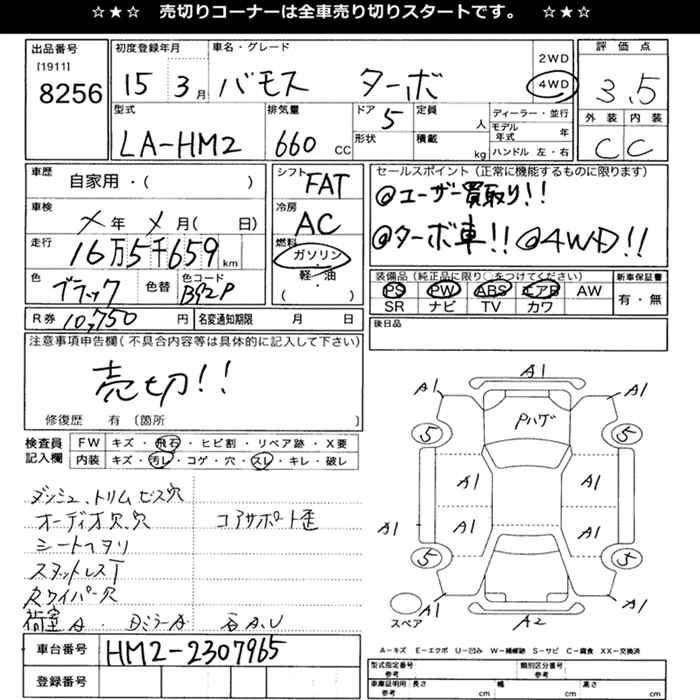 ☆★☆　売切りコーナーは全車売り切りスタートです。　☆★☆
出品番号
[1911]
8256
初度登録年月
15 3月
車名・グレード
バモス ターボ
2WD
4WD
評価点
3.5
外装 内装
C C
型式
LA-HM2
排気量
660 CC
ドア 5
形状
定員
人
積載
kg
ディーラー・並行
モデル年式 年
ハンドル 左・右
車歴
自家用・( )
車検
メ年 メ月( 日)
走行
16万5千659 km
色
ブラック
色替
色コード
B92P
R券 10,750 円
名変通知期限 月 日
シフト
FAT
冷房
AC
燃料
ガソリン
軽・油
( )
セールスポイント (正常に機能するものに限ります)
◎ユーザー買取り!!
◎ターボ車!! ◎4WD!!
装備品 (純正品に限り○をつけてください)
PS PW ABS エアB AW
SR ナビ TV カワ
新車保証書
有・無
後日品
注意事項申告欄(不具合内容等は具体的に記入して下さい)
売切!!
修復歴 有 (箇所 )
検査員記入欄
FW キズ・飛石・ヒビ割・リペア跡・X要
内装 キズ・汚レ・コゲ・穴・スレ・キレ・破レ
ダッシュ、トリムビス穴
オーディオ欠、穴 コアサポート歪
シートヘタリ
スタットレスT
車台番号 HM2-2307965
登録番号
A1
A1 A1
Pハゲ
5 5
A1 A1
A1 A1 A1 A1
5 5
A1 A1
スペア A2
A-キズ E-エクボ U-凹み W-補修跡 S-サビ C-腐食 XX-交換済
型式指定番号 参考
類別区分番号 参考
車庫証明用 参考
長さ cm 幅 cm 高さ cm